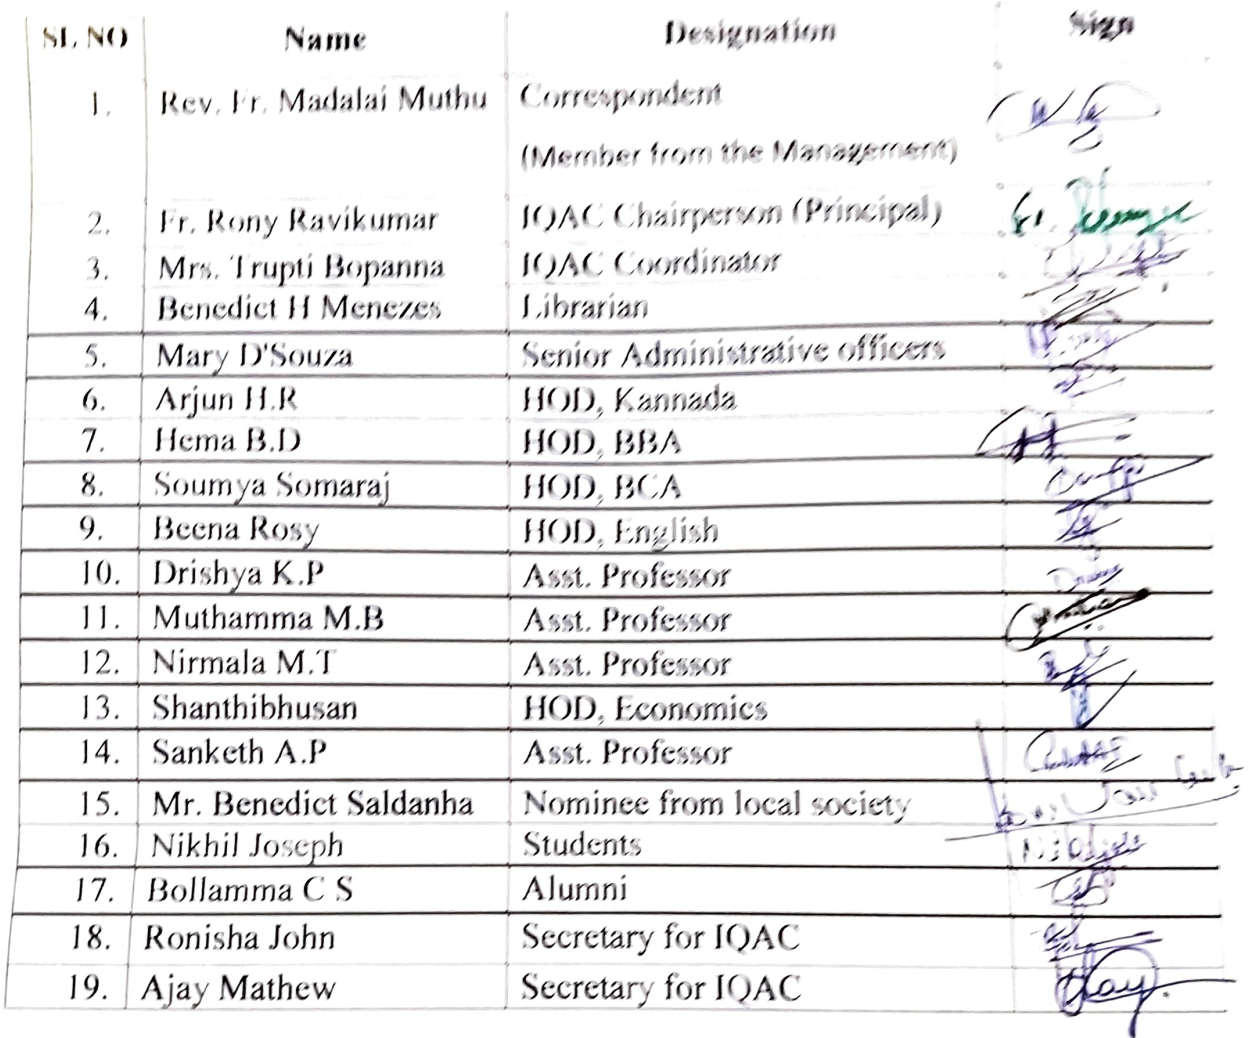 SL NO Name Designation Sign
1. Rev. Fr. Madalai Muthu Correspondent
(Member from the Management)
2. Fr. Rony Ravikumar IQAC Chairperson (Principal)
3. Mrs. Trupti Bopanna IQAC Coordinator
4. Benedict H Menezes Librarian
5. Mary D'Souza Senior Administrative officers
6. Arjun H.R HOD, Kannada
7. Hema B.D HOD, BBA
8. Soumya Somaraj HOD, BCA
9. Beena Rosy HOD, English
10. Drishya K.P Asst. Professor
11. Muthamma M.B Asst. Professor
12. Nirmala M.T Asst. Professor
13. Shanthibhusan HOD, Economics
14. Sanketh A.P Asst. Professor
15. Mr. Benedict Saldanha Nominee from local society
16. Nikhil Joseph Students
17. Bollamma C S Alumni
18. Ronisha John Secretary for IQAC
19. Ajay Mathew Secretary for IQAC